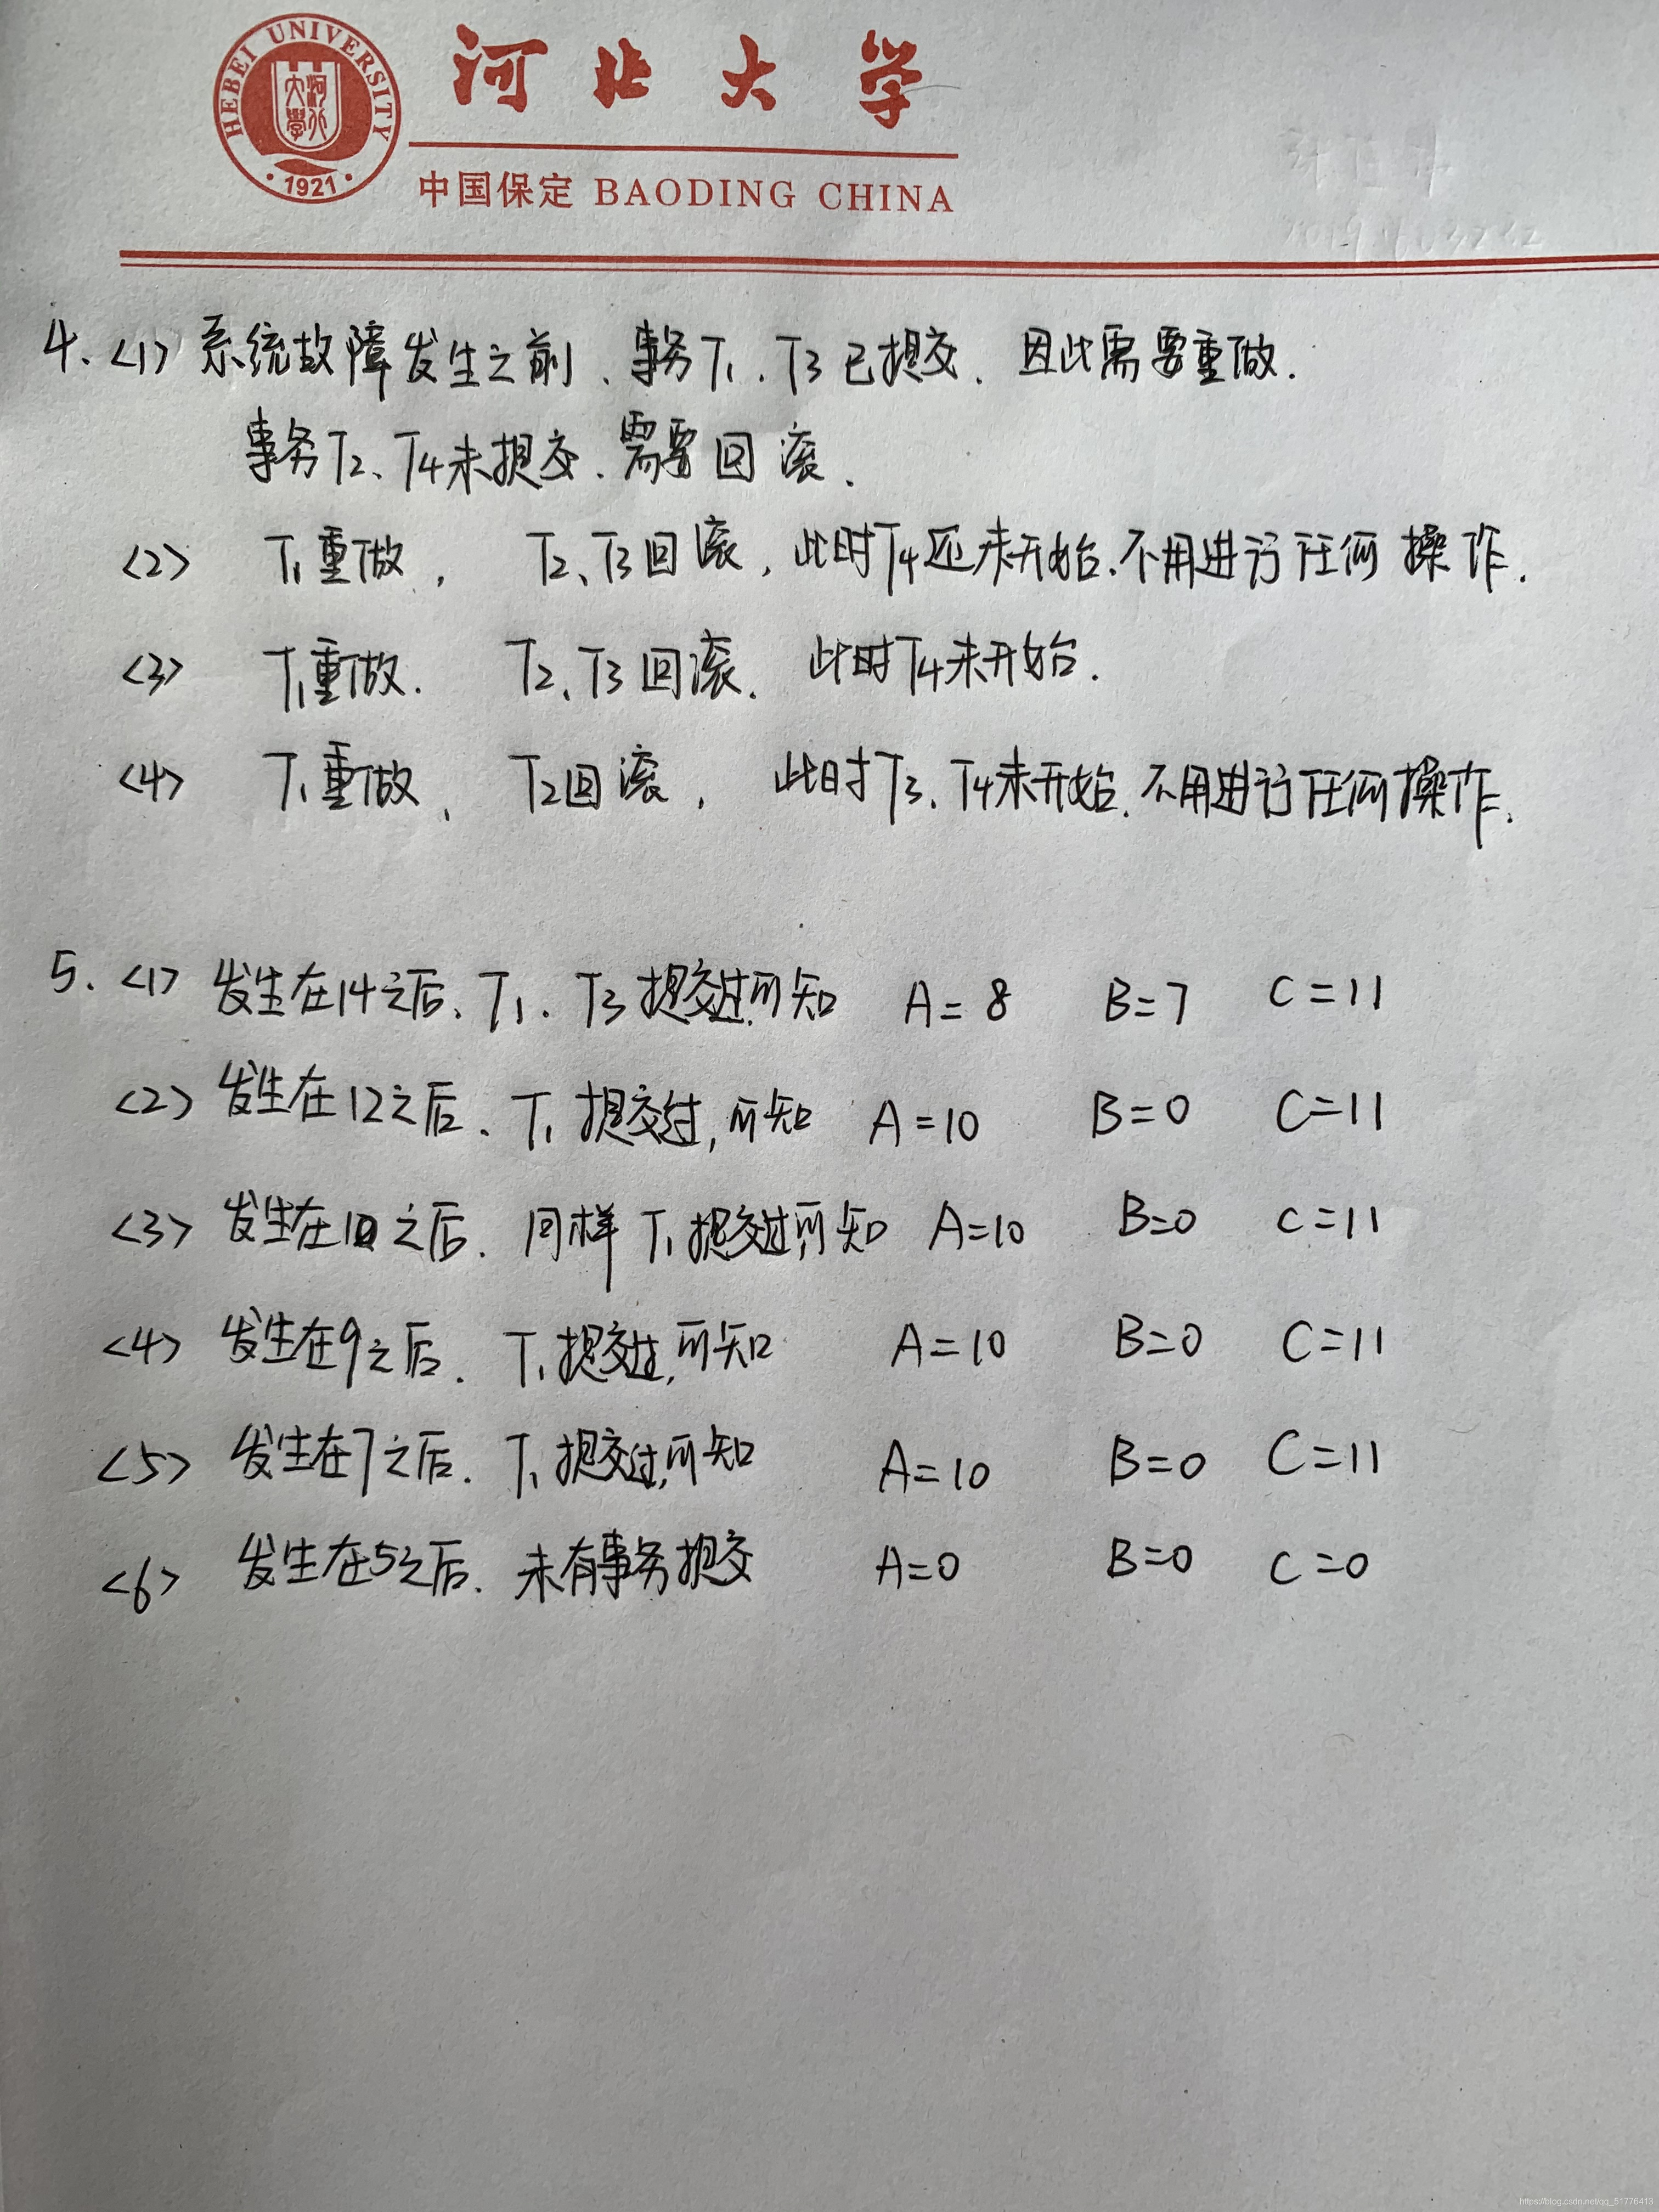 HEBEI UNIVERSITY
河北大学
1921
河北大学
中国保定 BAODING CHINA
4. <1> 系统故障发生之前、事务T1、T3已提交、因此需要重做.
事务T2、T4未提交、需要回滚.
<2> T1重做, T2、T3回滚, 此时T4还未开始.不用进行任何操作.
<3> T1重做. T2、T3回滚. 此时T4未开始.
<4> T1重做, T2回滚, 此时T3、T4未开始.不用进行任何操作.
5. <1> 发生在14之后、T1、T3提交过,所知 A=8 B=7 C=11
<2> 发生在12之后、T1提交过,所知 A=10 B=0 C=11
<3> 发生在10之后. 同样T1提交过,所知 A=10 B=0 C=11
<4> 发生在9之后. T1提交过,所知 A=10 B=0 C=11
<5> 发生在7之后. T1提交过,所知 A=10 B=0 C=11
<6> 发生在5之后. 未有事务提交 A=0 B=0 C=0
https://blog.csdn.net/qq_51776413